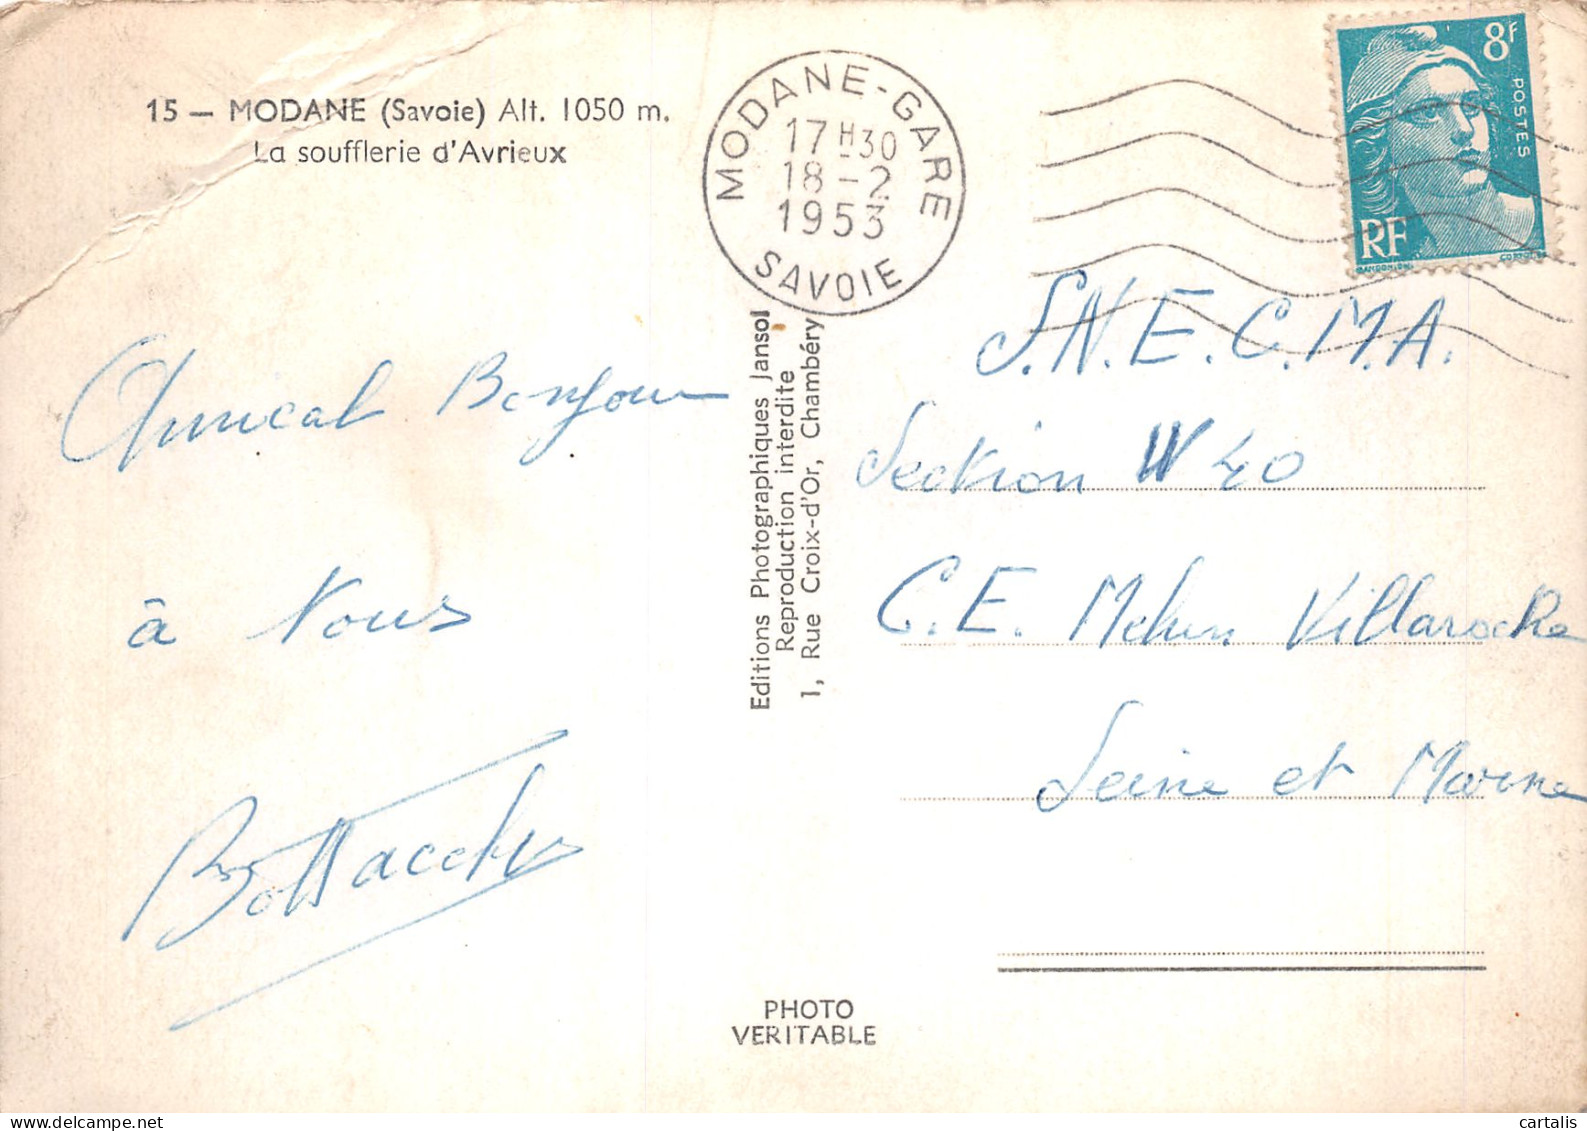 15 — MODANE (Savoie) Alt. 1050 m.
La soufflerie d'Avrieux
MODANE-GARE
17 H 30
18 - 2
1953
SAVOIE
8F
POSTES
RF
Amical Bonjour
à Vous
Editions Photographiques Jansol
Reproduction interdite
1, Rue Croix-d'Or, Chambéry
S.N.E.C.M.A.
Section W 40
C.E. Melun Villaroche
Seine et Marne
PHOTO
VERITABLE
cartalis